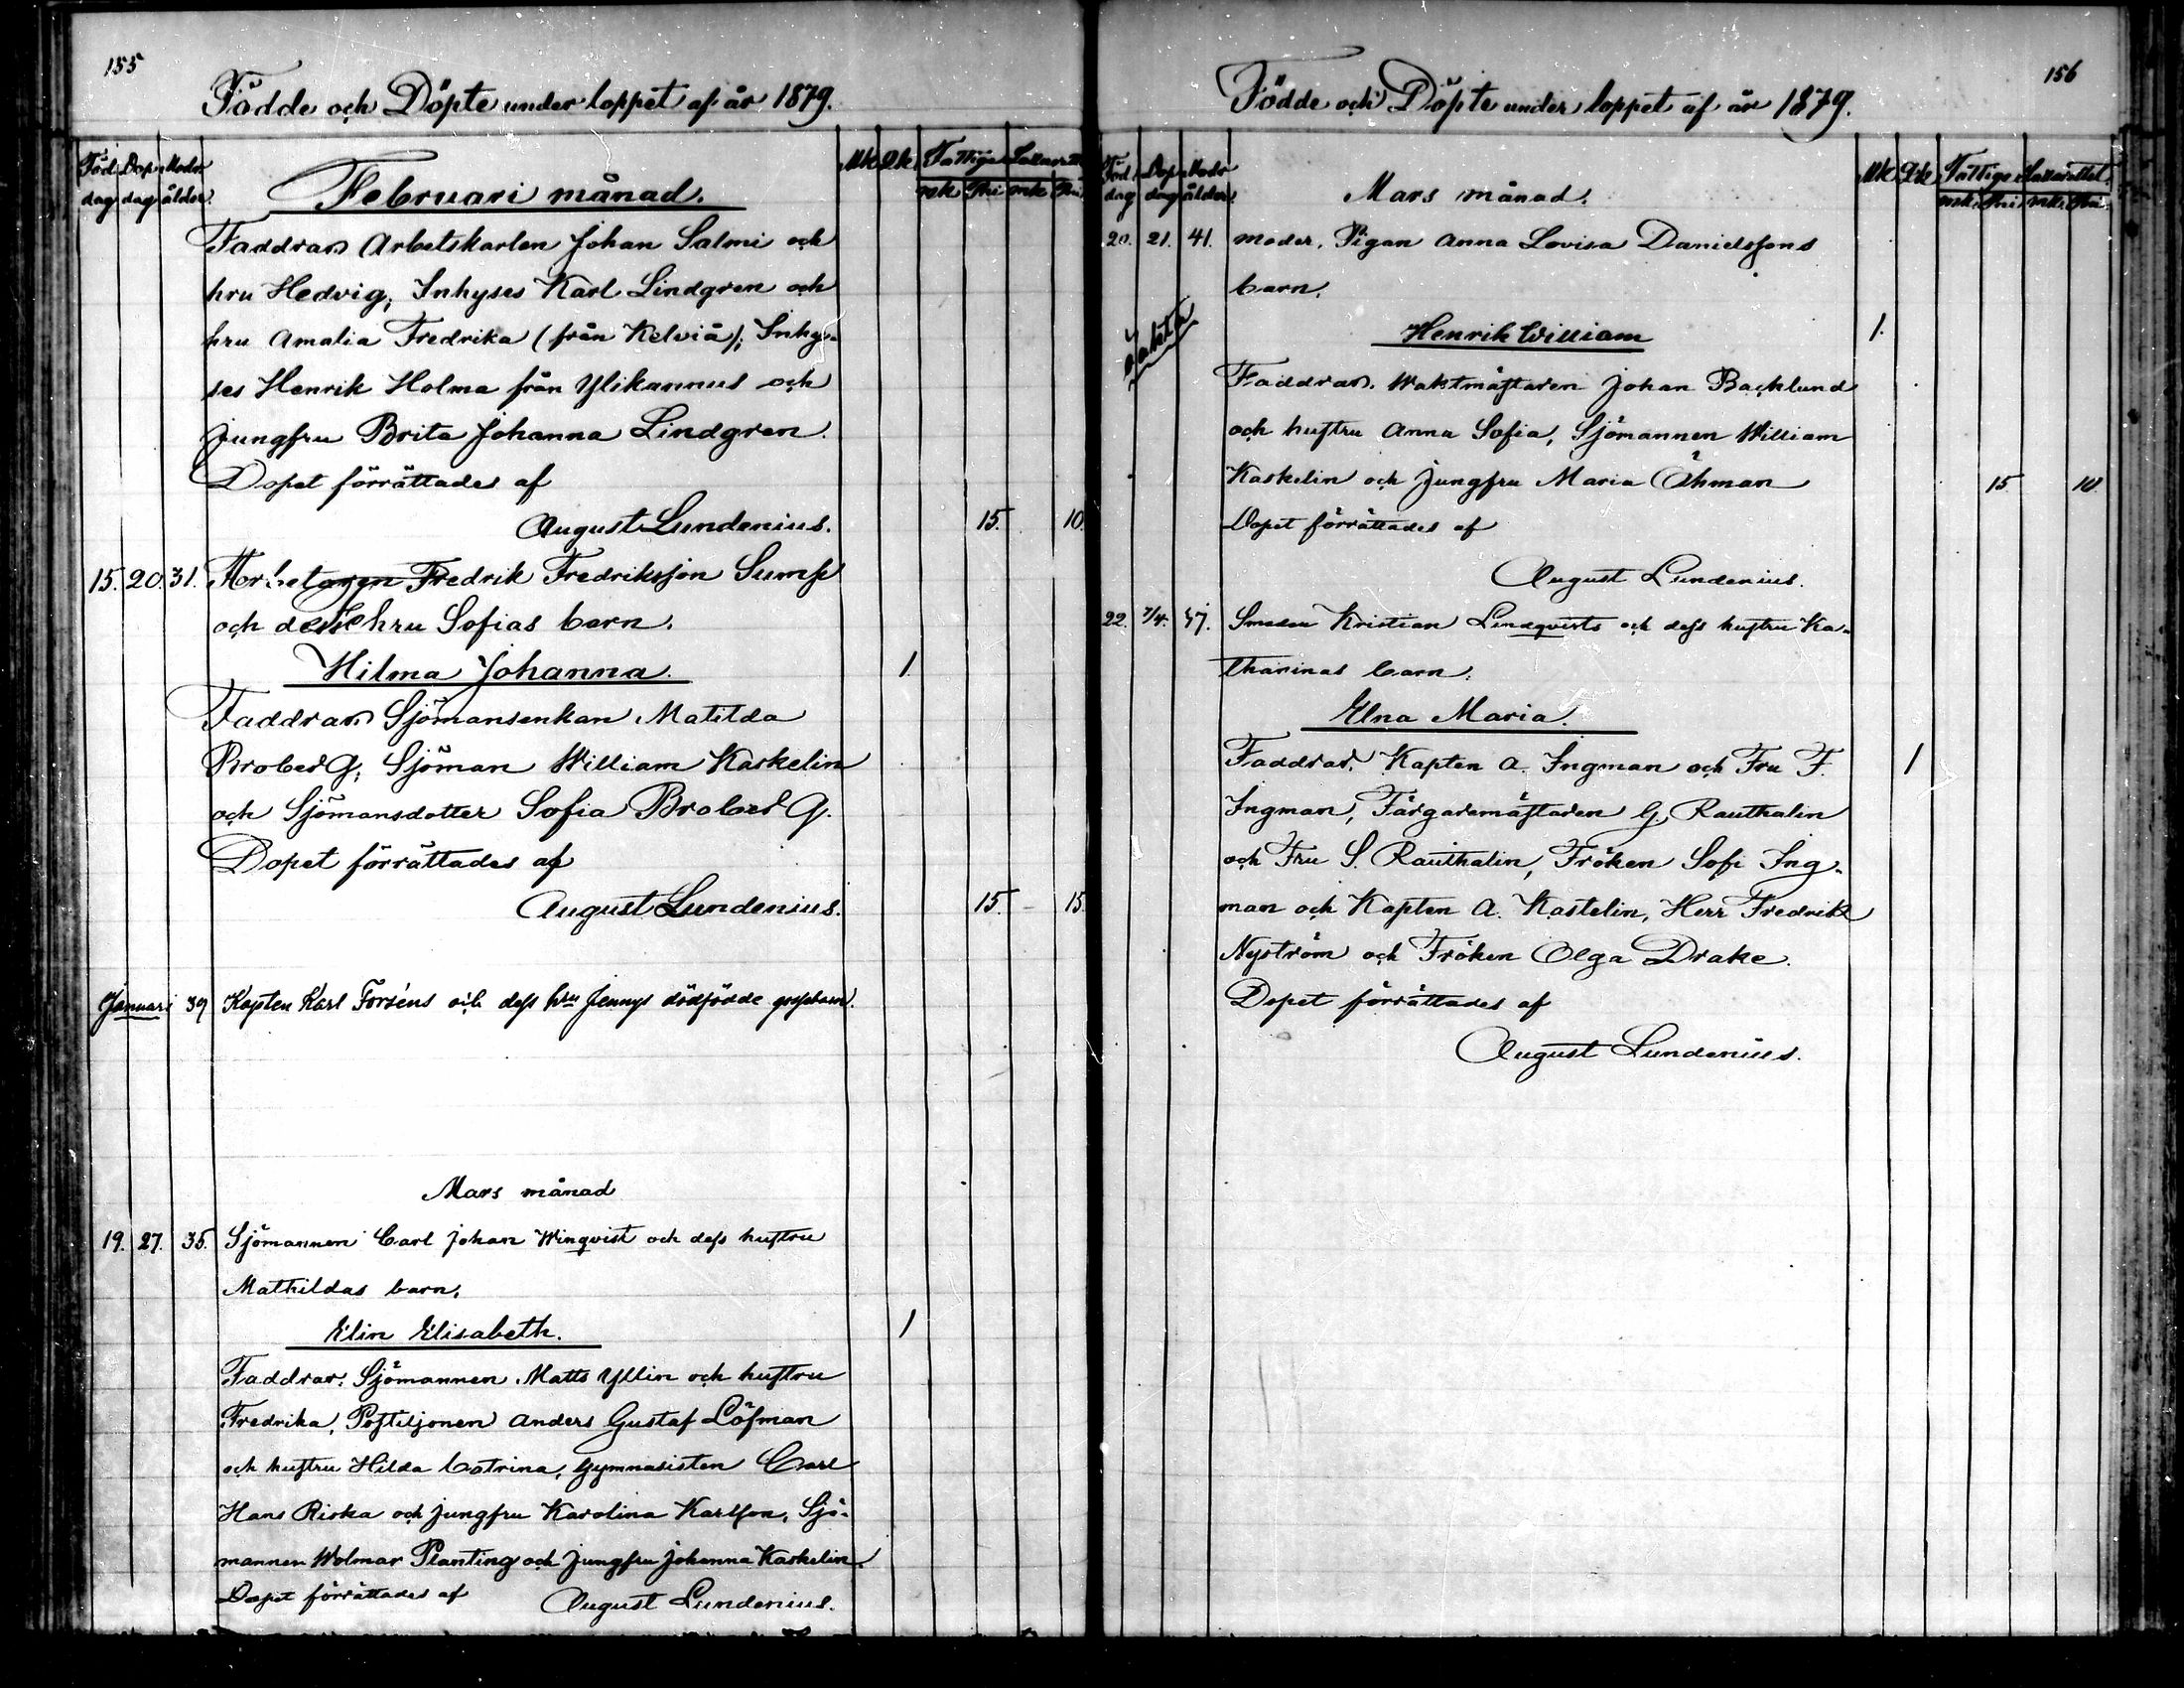 155
Födde och Döpte under loppet af år 1879.
Föd. dag Dop. dag Mod. ålder Mk Qk Fattige Lazarett
mk Pni mk Pni
Februari månad.
Faddrar Arbetskarlen Johan Salmi och
hru Hedvig, Inhyses Karl Lindgren och
hru Amalia Fredrika (från Kelviå), Inhy-
ses Henrik Holma från Ylikannus och
jungfru Brita Johanna Lindgren.
Dopet förrättades af
August Lundenius. 15. 10.
15. 20. 31. Fredrik Fredriksson Sump
och hru Sofias barn.
Hilma Johanna. 1
Faddrar Sjömansenkan Matilda
Broberg, Sjöman William Kaskelin
och Sjömansdotter Sofia Broberg.
Dopet förrättades af
August Lundenius. 15. 15.
Januari 39 Kapten Karl Forséns och dess hru Jennys dödfödde gossebarn.
Mars månad
19. 27. 35. Sjömannen Carl Johan Winqvist och dess hustru
Mathildas barn.
Elin Elisabeth. 1
Faddrar. Sjömannen Matts Yllin och hustru
Fredrika, Postiljonen Anders Gustaf Löfman
och hustru Hilda Catrina, Gymnasisten Carl
Hans Riska och jungfru Karolina Karlsson, Sjö-
mannen Wolmar Planting och jungfru Johanna Kaskelin.
Dopet förrättades af August Lundenius.
156
Födde och Döpte under loppet af år 1879.
Föd. dag Dop. dag Mods ålder Mk Qk Fattige Lazarettet
mk. Pni mk. Pni.
Mars månad.
20. 21. 41. moder. Pigan Anna Lovisa Danielssons
barn.
oäkta
Henrik William 1.
Faddrar. Waktmästaren Johan Backlund
och hustru Anna Sofia, Sjömannen William
Kaskelin och jungfru Maria Öhman 15 10
Dopet förrättades af
August Lundenius.
22. 7/4. 47. Smeden Kristian Lindqvists och dess hustru Ka-
tharinas barn.
Elna Maria.
Faddrar. Kapten A. Ingman och Fru F. 1
Ingman, Färgaremästaren G. Rauthalin
och Fru S. Rauthalin, Fröken Sofi Ing-
man och Kapten A. Kastelin, Herr Fredrik
Nyström och Fröken Olga Drake.
Dopet förrättades af
August Lundenius.